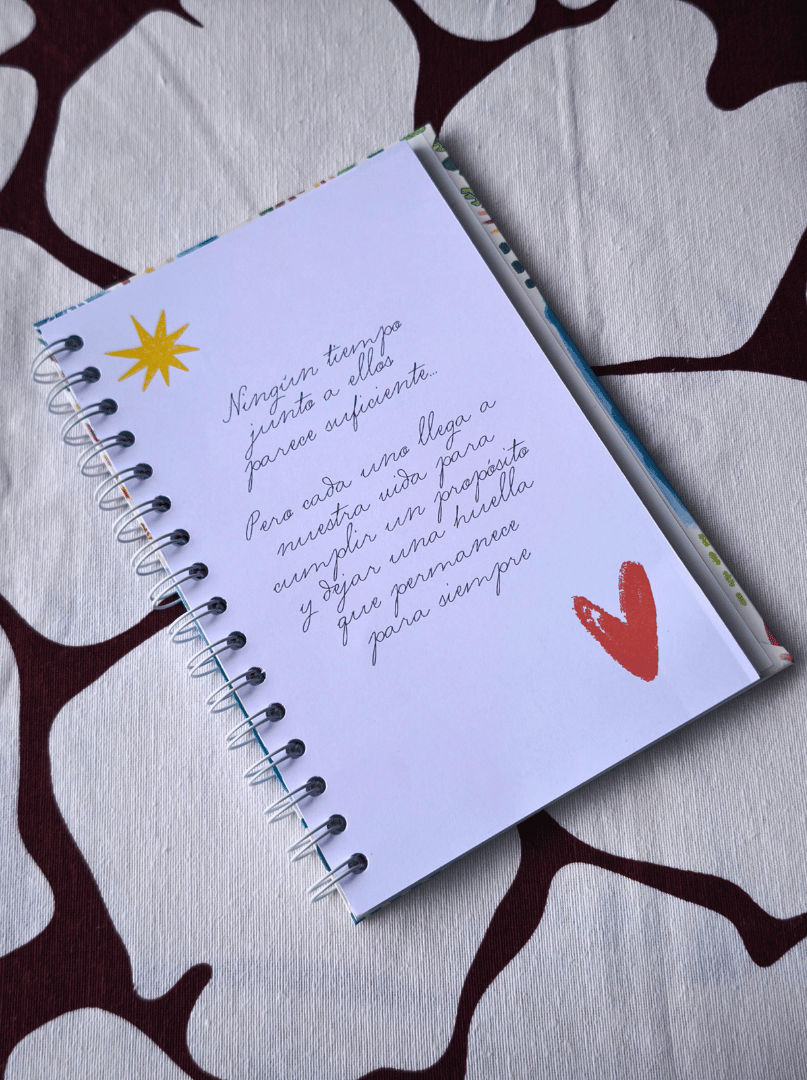 Ningún tiempo
junto a ellos
parece suficiente...
Pero cada uno llega a
nuestra vida para
cumplir un propósito
y dejar una huella
que permanece
para siempre